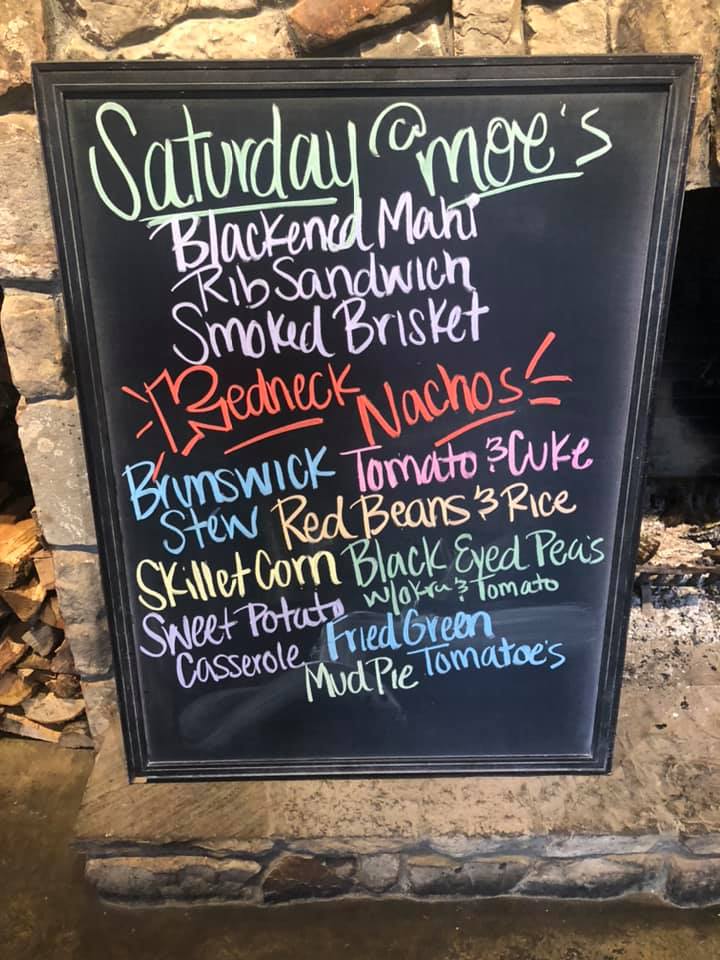 Saturday @ moe's
Blackened Mahi
Rib Sandwich
Smoked Brisket
Redneck Nachos
Brunswick Stew
Tomato & Cuke
Red Beans & Rice
Skillet Corn
Black Eyed Pea's
w/okra & Tomato
Sweet Potato
Casserole
Fried Green
Tomatoe's
Mud Pie